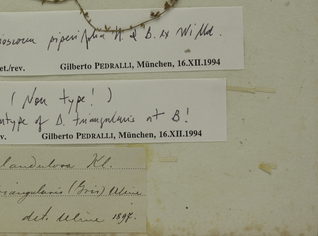 oscorea piperifolia H. & B. ex Willd.
et./rev. Gilberto PEDRALLI, München, 16.XII.1994
( Non type! )
ntype of D. triangularis at B!
v. Gilberto PEDRALLI, München, 16.XII.1994
landulosa Kl.
iangularis (Gris) Uline
det. Uline 1897.